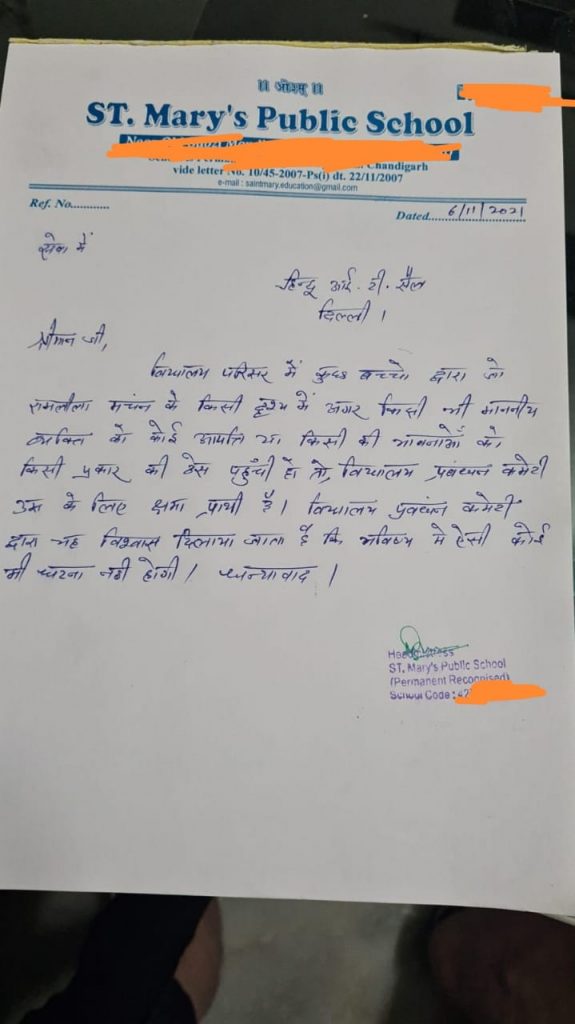 ॥ ओ३म् ॥
ST. Mary's Public School
Chandigarh
vide letter No. 10/45-2007-Ps(i) dt. 22/11/2007
e-mail : saintmary.education@gmail.com
Ref. No...........
Dated...6/11/2021
सेवा में
हिन्दू आई. टी. सैल
दिल्ली।
श्रीमान जी,
विद्यालय परिसर में कुछ बच्चो द्वारा जो
रामलीला मचंन के किसी दृश्य में अगर किसी भी माननीय
व्यक्ति को कोई आपत्ति या किसी की भावनाओं को
किसी प्रकार की ठेस पहुँची हो तो, विद्यालय प्रबंधन कमेटी
उस के लिए क्षमा प्रार्थी है। विद्यालय प्रबंधन कमेटी
द्वारा यह विश्वास दिलाया जाता है कि भविष्य मे ऐसी कोई
भी घटना नही होगी। धन्यावाद।
ST. Mary's Public School
(Permanent Recognised)
School Code :